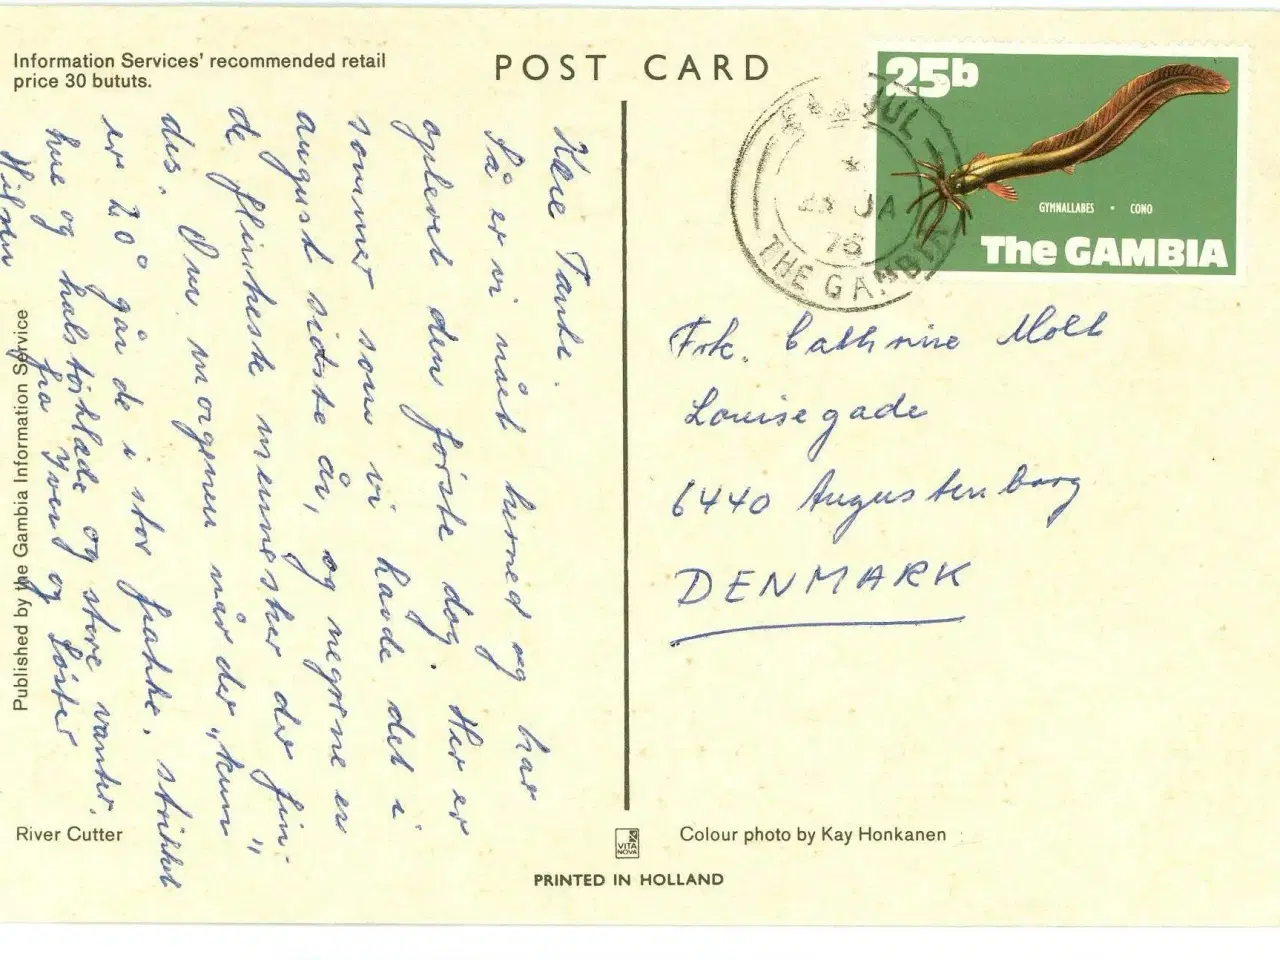 Information Services' recommended retail
price 30 bututs.
POST CARD
25b
GYMNALLABES · CONO
The GAMBIA
BANJUL
JA
THE GAMBIA
Kære Tante.
Så er vi nået herned og har
oplevet den første dag. Her er
sommer som vi havde det i
august sidste år, og negrene er
de flinkeste mennesker der fin-
des. Om morgenen når der „kun"
er 20° går de i stor frakke, strikket
hue og halstørklæde og store vanter.
Hilsen
fra Yvent og Søster
Frk. Cathrine Moll
Louisegade
6440 Augustenborg
DENMARK
Published by the Gambia Information Service
River Cutter
VITA
NOVA
Colour photo by Kay Honkanen
PRINTED IN HOLLAND